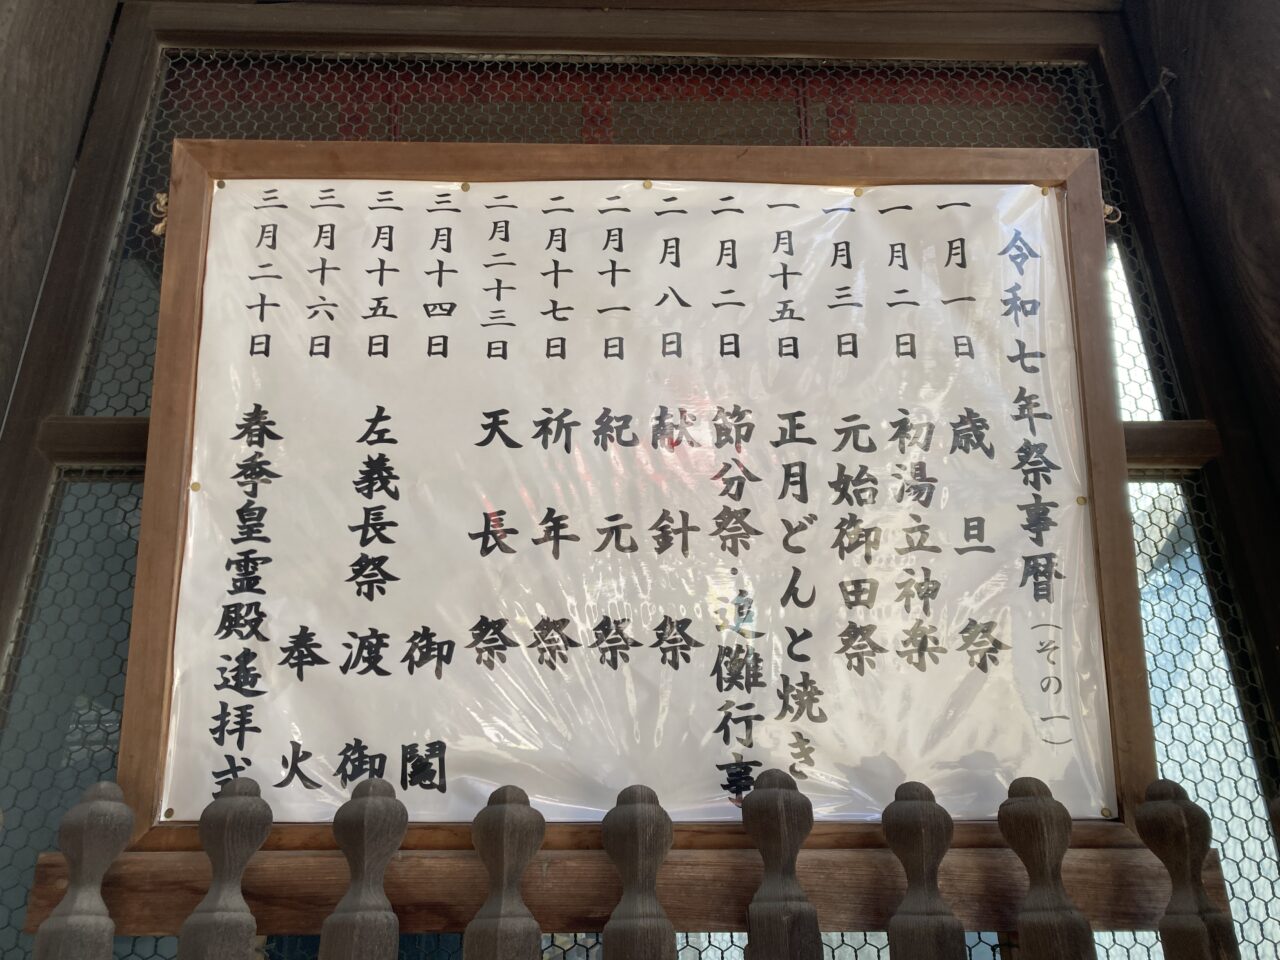 令和七年祭事暦（その一）
一月一日 歳旦祭
一月二日 初湯立神楽
一月三日 元始御田祭
一月十五日 正月どんと焼き
二月二日 節分祭・追儺行事
二月八日 献針祭
二月十一日 紀元祭
二月十七日 祈年祭
二月二十三日 天長祭
三月十四日 御鬮
三月十五日 左義長祭 渡御
三月十六日 奉火
三月二十日 春季皇霊殿遙拝式